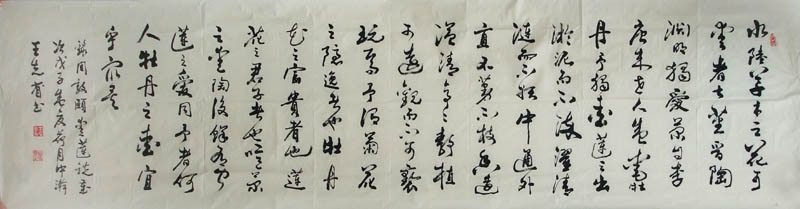 水陸草木之花可
愛者甚蕃晉陶
淵明獨愛菊自李
唐來世人盛愛牡
丹予獨愛蓮之出
淤泥而不染濯清
漣而不妖中通外
直不蔓不枝香遠
溢清亭々静植
可遠觀而不可褻
玩焉予謂菊花
之隱逸者也牡丹
花之富貴者也蓮
花之君子者也噫菊
之愛陶後鮮有聞
蓮之愛同予者何
人牡丹之愛宜
乎眾矣
錄周敦頤愛蓮說歲
次戊子年夏荷月中浣
王先書